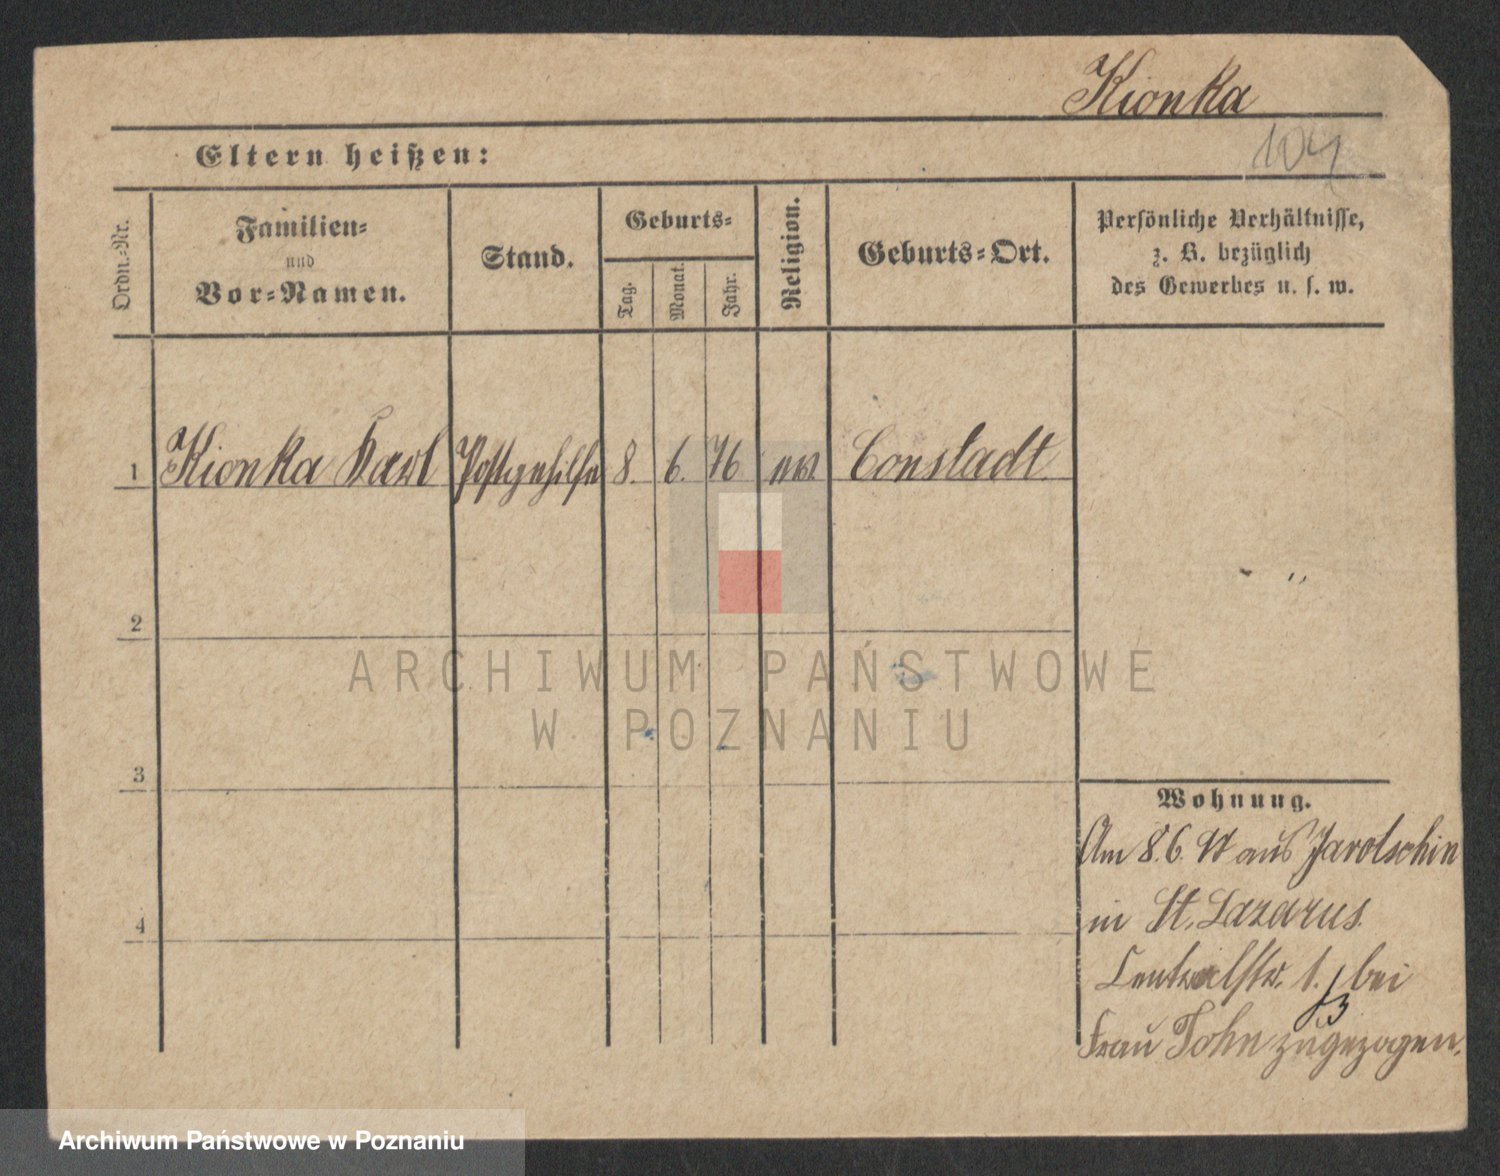 Kionka
104
Eltern heißen:
Ordn.-Nr.
Familien-
und
Vor-Namen.
Stand.
Geburts-
Tag.
Monat.
Jahr.
Religion.
Geburts-Ort.
Persönliche Verhältnisse,
z. B. bezüglich
des Gewerbes u. s. w.
1 Kionka Karl Postgehilfe 8. 6. 76 ev. Constadt.
2
3
4
Wohnung.
Am 8.6. aus Jarotschin
in St. Lazarus.
Centralstr. 1. bei
Frau John zugezogen.
ARCHIWUM PAŃSTWOWE
W POZNANIU
Archiwum Państwowe w Poznaniu